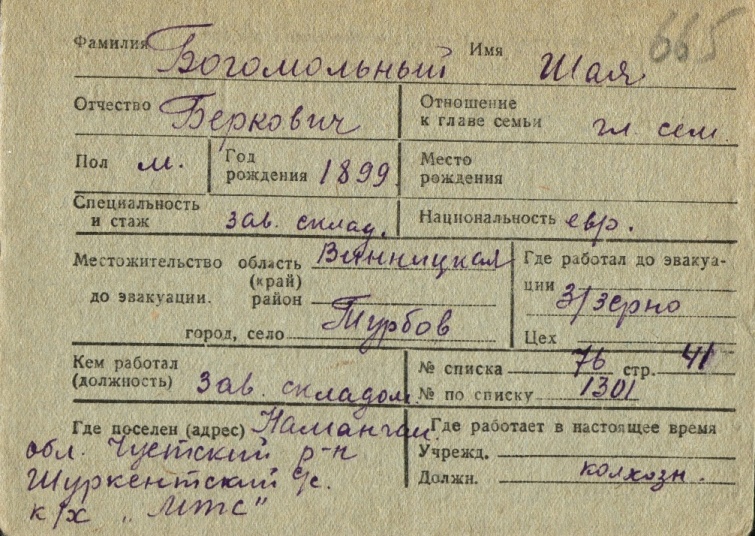 665
Фамилия Богомольный Имя Шая
Отчество Беркович Отношение к главе семьи гл. сем.
Пол м. Год рождения 1899 Место рождения
Специальность и стаж зав. склад. Национальность евр.
Местожительство область Винницкая Где работал до эвакуа-
(край) ции З/зерно
до эвакуации. район
город, село Турбов Цех
Кем работал № списка 76 стр. 41
(должность) Зав. складом № по списку 1301
Где поселен (адрес) Наманган. Где работает в настоящее время
обл. Чустский р-н Учрежд.
Шуркентский с/с. Должн. колхозн.
к/х „МТС"